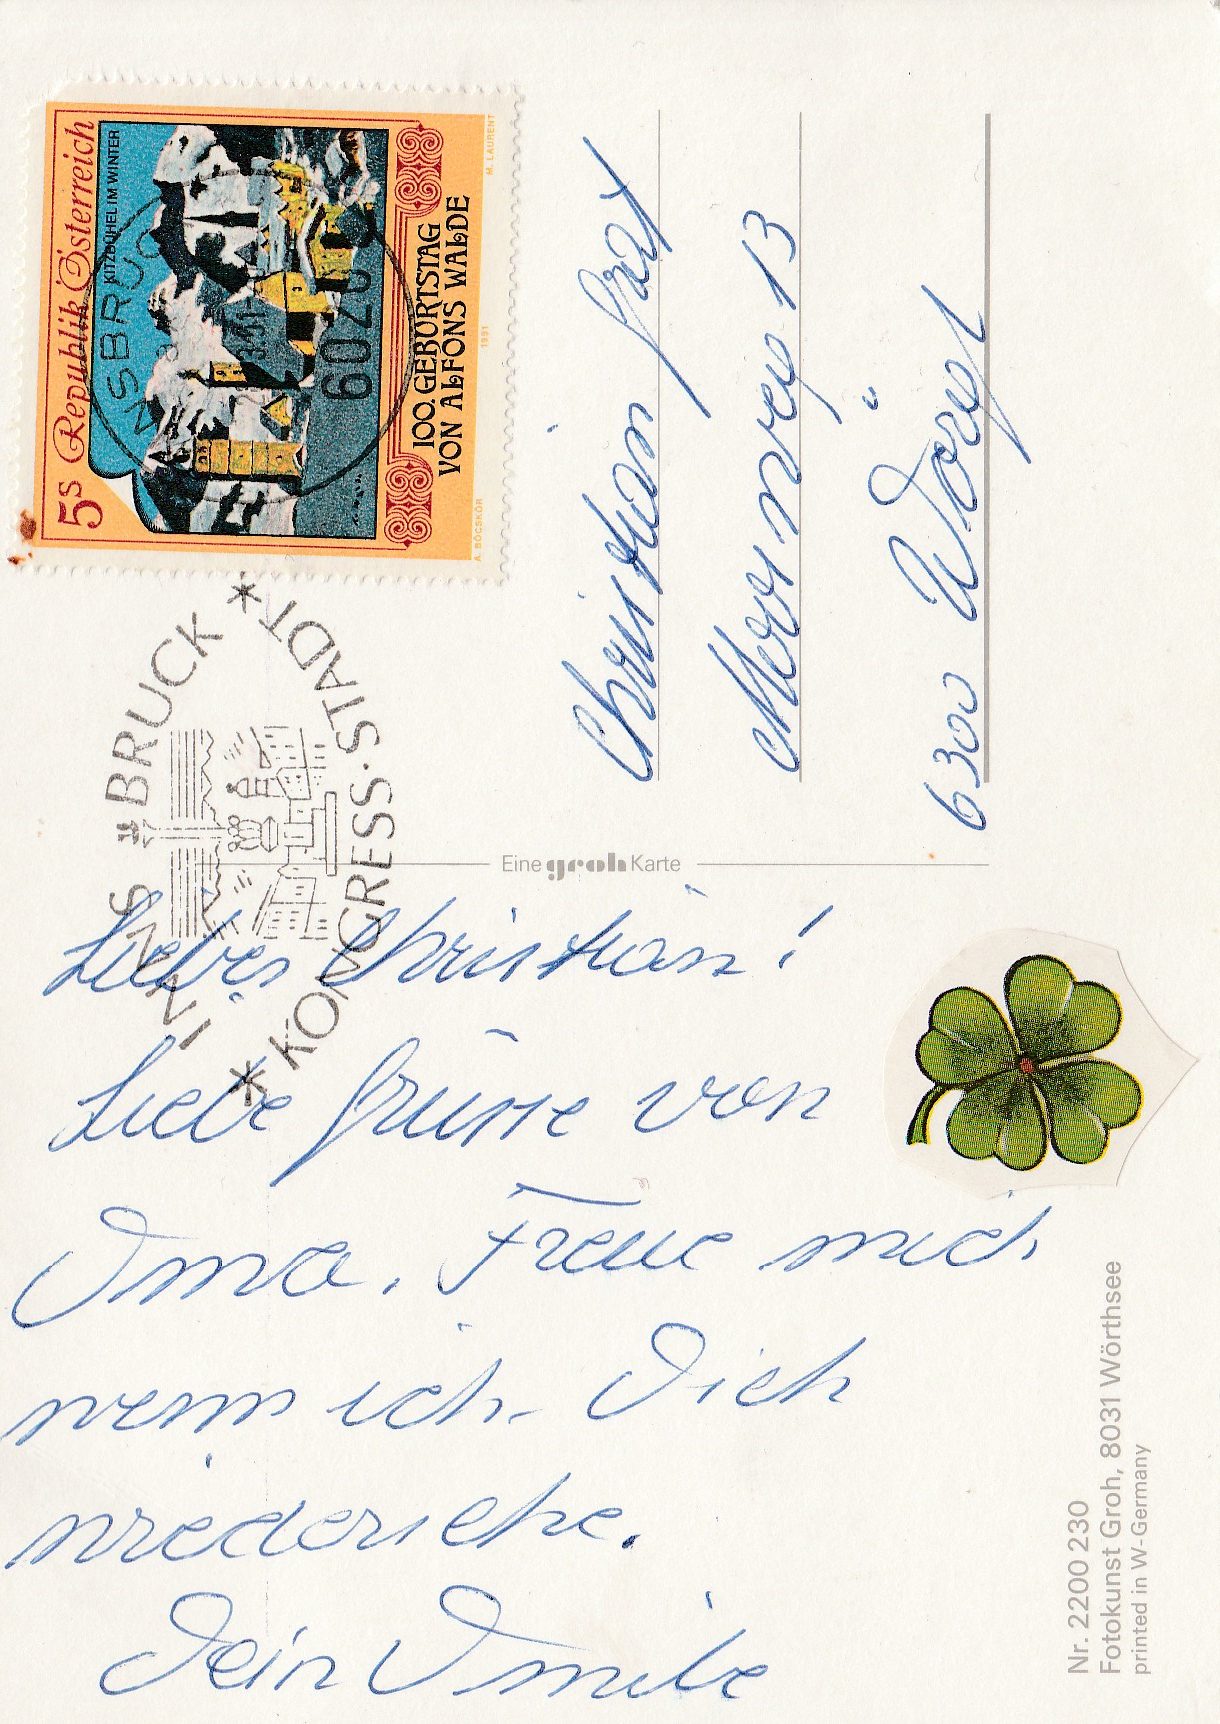 Republik Österreich
5s
KITZBÜHEL IM WINTER
100. GEBURTSTAG
VON ALFONS WALDE
A. BÖCSKÖR 1991 M. LAURENT
NSBRUC
6020
INNSBRUCK
* KONGRESS·STADT *
Christian
13
6300 Wörgl
Eine groh Karte
Lieber Christian!
Liebe Grüsse von
Oma. Freue mich
wenn ich Dich
wiedersehe.
Dein
Nr. 2200 230
Fotokunst Groh, 8031 Wörthsee
printed in W-Germany